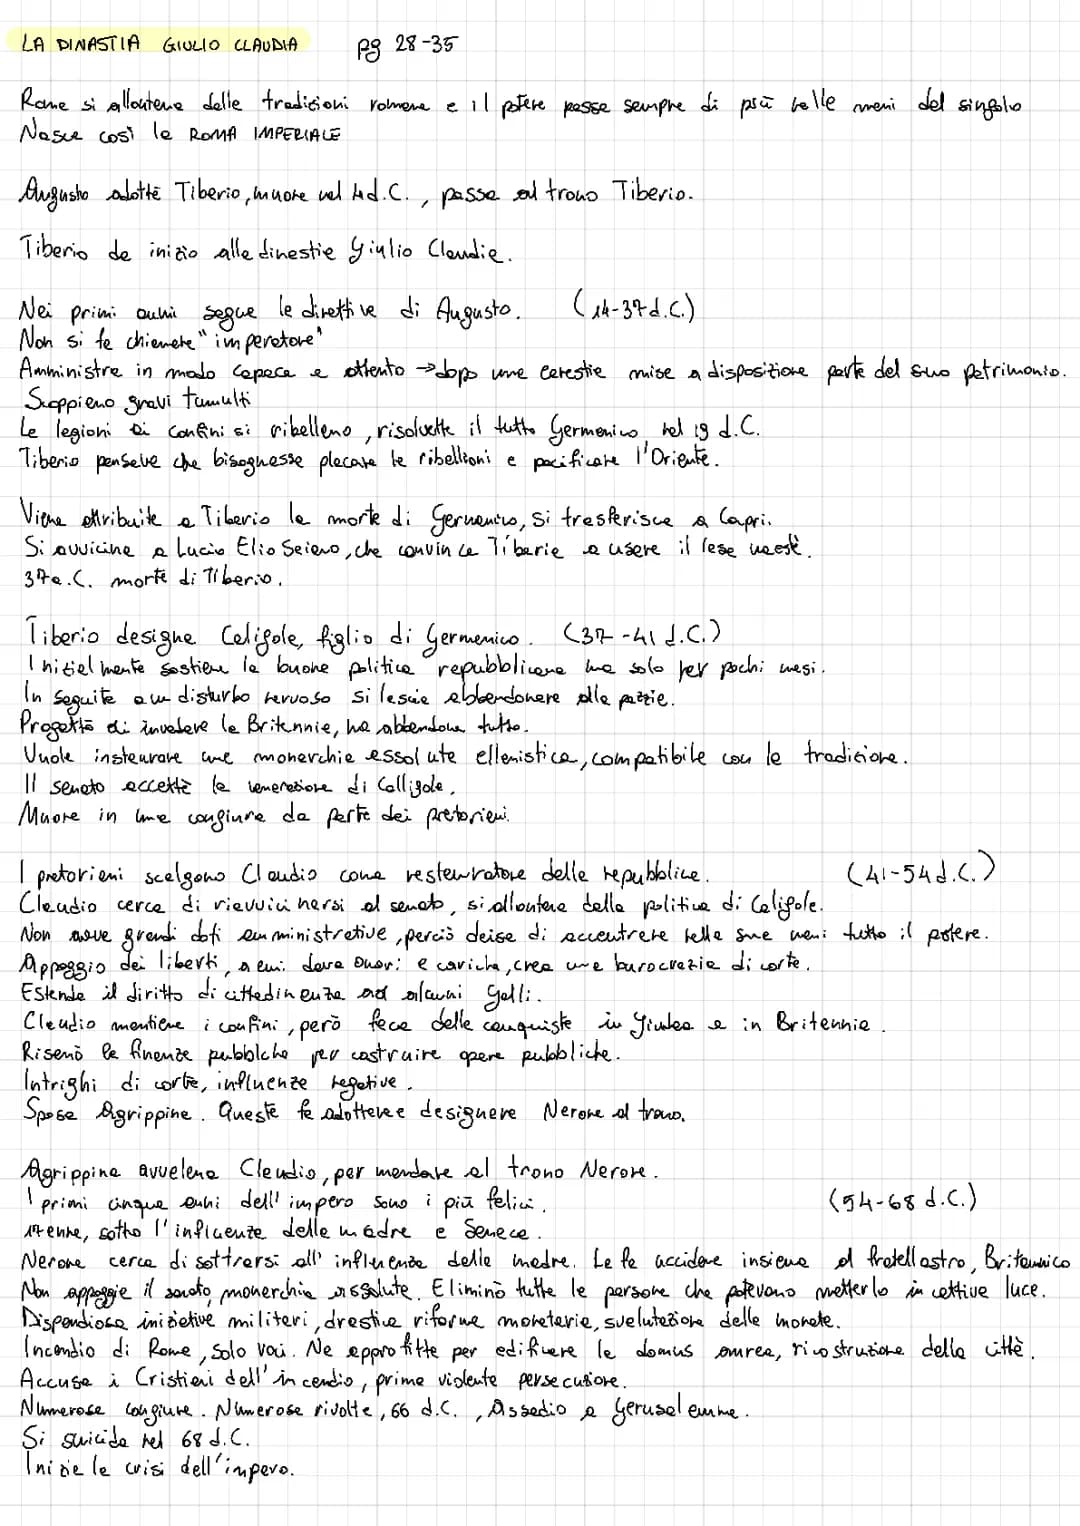 LA DINASTIA GIULIO CLAUDIA pg 28-35
Roma si allontana dalle tradizioni romane e il potere passa sempre di più nelle mani del singolo
Nasce così la ROMA IMPERIALE
Augusto adotta Tiberio, muore nel 14 d.C., passa al trono Tiberio.
Tiberio da inizio alla dinastia Giulio Claudia.
Nei primi anni segue le direttive di Augusto. (14-37 d.C.)
Non si fa chiamare "imperatore"
Amministra in modo capace e attento → dopo una carestia mise a disposizione parte del suo patrimonio.
Scoppiano gravi tumulti
Le legioni ai confini si ribellano, risolvette il tutto Germanico, nel 19 d.C.
Tiberio pensava che bisognasse placare le ribellioni e pacificare l'Oriente.
Viene attribuita a Tiberio la morte di Germanico, si trasferisce a Capri.
Si avvicina a Lucio Elio Seiano, che convince Tiberio a usare il lesa maestà.
37 a.C. morte di Tiberio.
Tiberio designa Caligola, figlio di Germanico. (37-41 d.C.)
Inizialmente sostiene la buona politica repubblicana ma solo per pochi mesi.
In seguito a un disturbo nervoso si lascia abbandonare alla pazzia.
Progettò di invadere la Britannia, ma abbandona tutto.
Vuole instaurare una monarchia assoluta ellenistica, compatibile con la tradizione.
Il senato accettà la venerazione di Calligola.
Muore in una congiura da parte dei pretoriani.
I pretoriani scelgono Claudio come restauratore della repubblica. (41-54 d.C.)
Claudio cerca di riavvicinarsi al senato, si allontana dalla politica di Caligola.
Non aveva grandi doti amministrative, perciò decise di accentrare nelle sue mani tutto il potere.
Appoggio dei liberti, a cui dava onori e cariche, crea una burocrazia di corte.
Estende il diritto di cittadinanza ad alcuni Galli.
Claudio mantiene i confini, però fece delle conquiste in Giudea e in Britannia.
Risanò le finanze pubbliche per costruire opere pubbliche.
Intrighi di corte, influenze negative.
Sposa Agrippina. Questa fa adottare e designare Nerone al trono.
Agrippina avvelena Claudio, per mandare al trono Nerone.
I primi cinque anni dell'impero sono i più felici. (54-68 d.C.)
17enne, sotto l'influenza della madre e Seneca.
Nerone cerca di sottrarsi all'influenza della madre. La fa uccidere insieme al fratellastro, Britannico
Non appoggia il senato, monarchia assoluta. Eliminò tutte le persone che potevano metterlo in cattiva luce.
Dispendiosa iniziative militari, drastica riforma monetaria, svalutazione delle monete.
Incendio di Roma, solo voci. Ne approfitta per edificare la domus aurea, ricostruzione della città.
Accusa i Cristiani dell'incendio, prima violenta persecuzione.
Numerose congiure. Numerose rivolte, 66 d.C., Assedio a Gerusalemme.
Si suicida nel 68 d.C.
Inizia la crisi dell'impero.